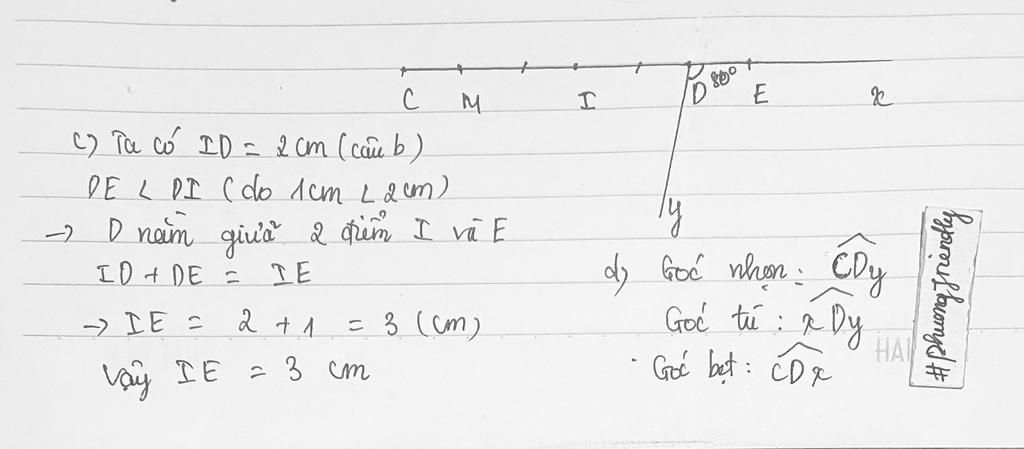 C M I D 80° E x
y
c) Ta có ID = 2cm (câu b)
DE < DI (do 1cm < 2cm)
→ D nằm giữa 2 điểm I và E
ID + DE = IE
→ IE = 2 + 1 = 3 (cm)
Vậy IE = 3 cm
d) Góc nhọn: CDy
Góc tù: xDy
Góc bẹt: CDx
HAI
#phuongfriendly